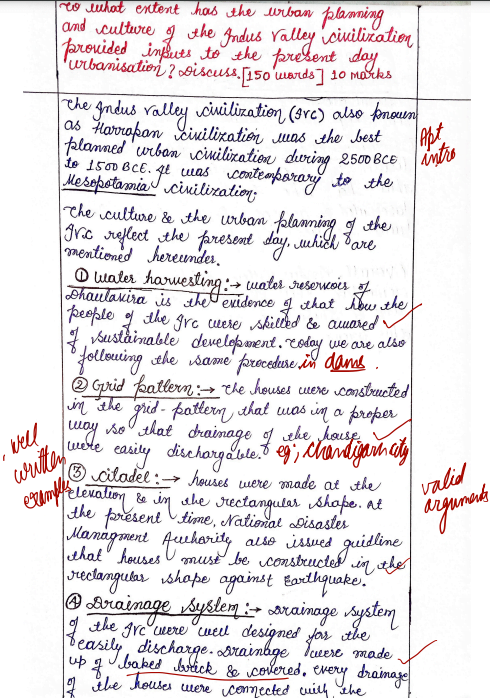 to what extent has the urban planning
and culture of the Indus Valley civilization
provided inputs to the present day
urbanisation? Discuss. [150 words] 10 marks
The Indus Valley civilization (IVC) also known
as Harrapan civilization was the best
planned urban civilization during 2500 BCE
to 1500 BCE. It was contemporary to the
Mesopotamia civilization.
Apt
intro
The culture & the urban planning of the
IVC reflect the present day, which are
mentioned hereunder.
① Water harvesting :→ water reservoirs of
Dhaulavira is the evidence of that how the
people of the IVC were skilled & awared
of sustainable development. Today we are also
following the same procedure in dams.
② Grid pattern :→ The houses were constructed
in the grid-pattern that was in a proper
way so that drainage of the house
were easily dischargable. eg; Chandigarh city
well
written
examples
③ Citadel :→ houses were made at the
elevation & in the rectangular shape. At
the present time, National Disaster
Managment Authority also issued guidline
that houses must be constructed in the
rectangular shape against Earthquake.
valid
arguments
④ Drainage System :→ Drainage system
of the IVC were well designed for the
easily discharge. Drainage were made
up of baked brick & covered. Every drainage
of the houses were connected with the